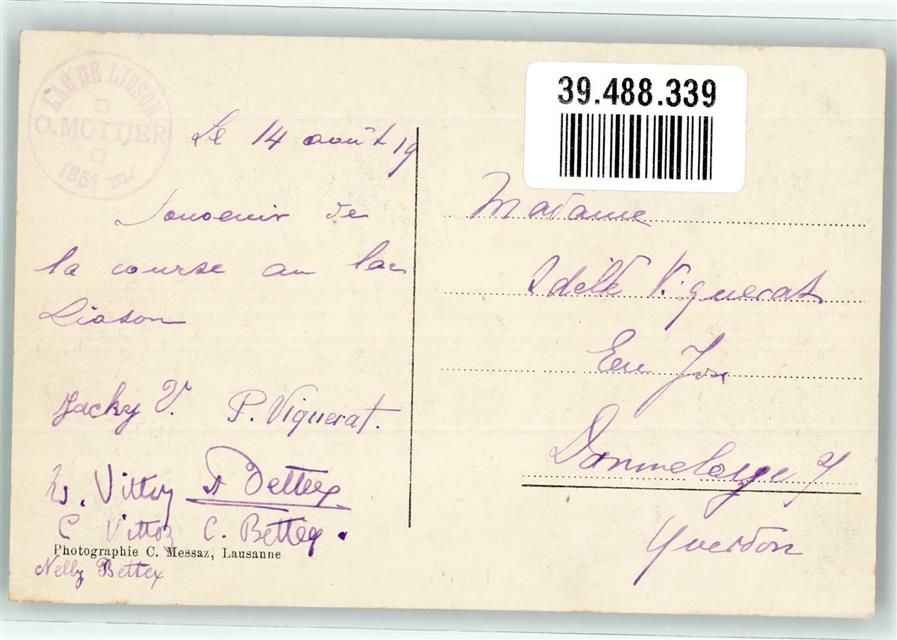 LAC DE LIOSON
O. MOTTJER
1851 m.
39.488.339
Le 14 août 19
Souvenir de
la course au lac
Lioson
Jacky V. P. Viquerat.
Vittoz A Bettex
C Vittoz C. Bettex.
Photographie C. Messaz, Lausanne
Nelly Bettex
Madame
Adèle Viquerat
En
Donneloye s/
Yverdon